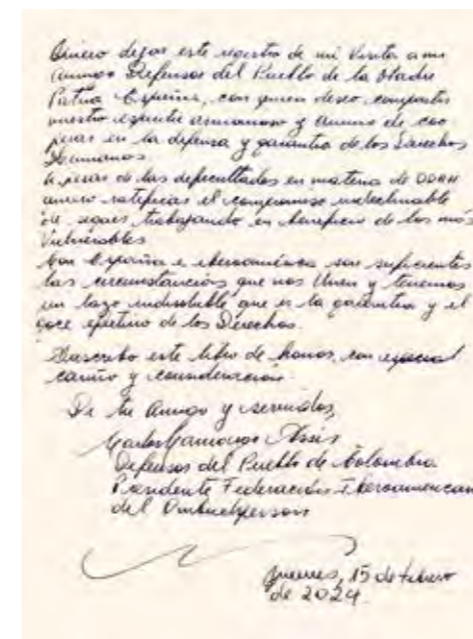 Quiero dejar este registro de mi visita a mi
amigo Defensor del Pueblo de la Madre
Patria España, con quien deseo compartir
nuestro espíritu armonioso y ánimo de coo
perar en la defensa y garantía de los Derechos
Humanos.
A pesar de las dificultades en materia de DDHH
quiero ratificar el compromiso indeclinable
de seguir trabajando en beneficio de los más
Vulnerables
Con España e iberoamérica son suficientes
las circunstancias que nos Unen y tenemos
un lazo indisoluble que es la garantía y el
goce efectivo de los Derechos.
Suscribo este libro de honor, con especial
cariño y consideración.
De tu Amigo y servidor,
Carlos Camargo Assis
Defensor del Pueblo de Colombia
Presidente Federación Iberoamericana
del Ombudsperson
jueves, 15 de febrero
de 2024.